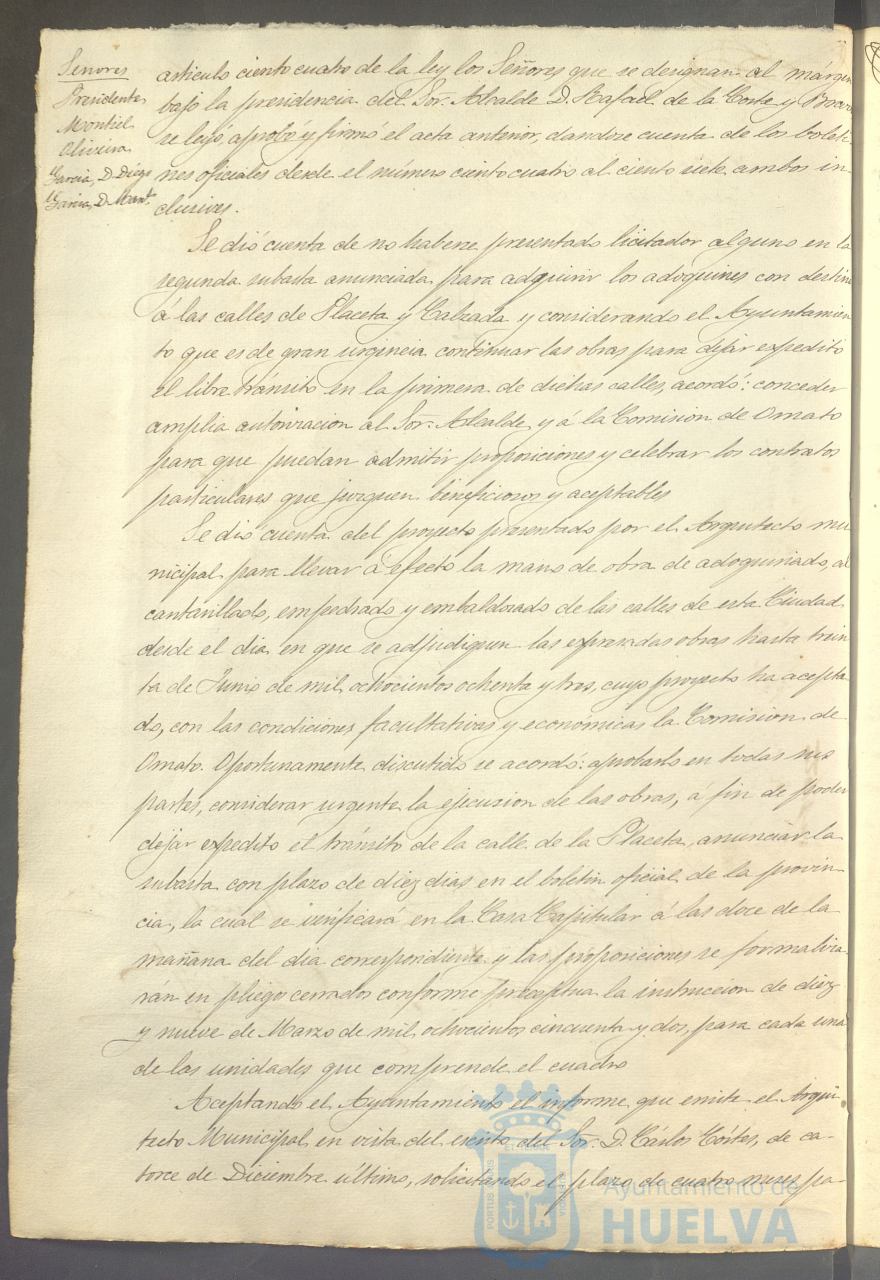 Señores
Presidente
Montiel
Oliveira
García, D. Diego
García, D. Man.l
artículo ciento cuatro de la ley los Señores que se designan al márgen
bajo la presidencia del Sor. Alcalde D. Rafael de la Corte y Bravo
se leyó, aprobó y firmó el acta anterior, dandose cuenta de los boleti
nes oficiales desde el número ciento cuatro al ciento siete ambos in-
clusives.
Se dió cuenta de no haberse presentado licitador alguno en la
segunda subasta anunciada para adquirir los adoquines con destino
á las calles de Placeta y Calzada y considerando el Ayuntamien
to que es de gran urgencia continuar las obras para dejar expedito
el libre tránsito en la primera de dichas calles, acordó: conceder
amplia autorizacion al Sor. Alcalde y á la Comision de Ornato
para que puedan admitir proposiciones y celebrar los contratos
particulares que juzguen beneficiosos y aceptables
Se dio cuenta del proyecto presentado por el Arquitecto mu
nicipal para llevar á efecto la mano de obra de adoquinado, al
cantarillado, empedrado y embaldosado de las calles de esta Ciudad
desde el dia en que se adjudiquen las expresadas obras hasta trein
ta de Junio de mil ochocientos ochenta y tres, cuyo proyecto ha acepta
do, con las condiciones facultativas y economicas la Comision de
Ornato. Oportunamente discutido se acordó: aprobarlo en todas sus
partes, considerar urgente la ejecucion de las obras, á fin de poder
dejar expedito el tránsito de la calle de la Placeta, anunciar la
subasta con plazo de diez dias en el boletin oficial de la provin
cia, la cual se verificará en la Casa Capitular á las doce de la
mañana del dia correspondiente y las proposiciones se formaliza
rán en pliegos cerrados conforme preceptua la instruccion de diez
y nueve de Marzo de mil ochocientos cincuenta y dos, para cada una
de las unidades que comprende el cuadro
Aceptando el Ayuntamiento el informe que emite el Arqui
tecto Municipal en vista del escrito del Sor. D. Cárlos Córtes, de ca-
torce de Diciembre último, solicitando el plazo de cuatro meses pa-
Ayuntamiento de
HUELVA